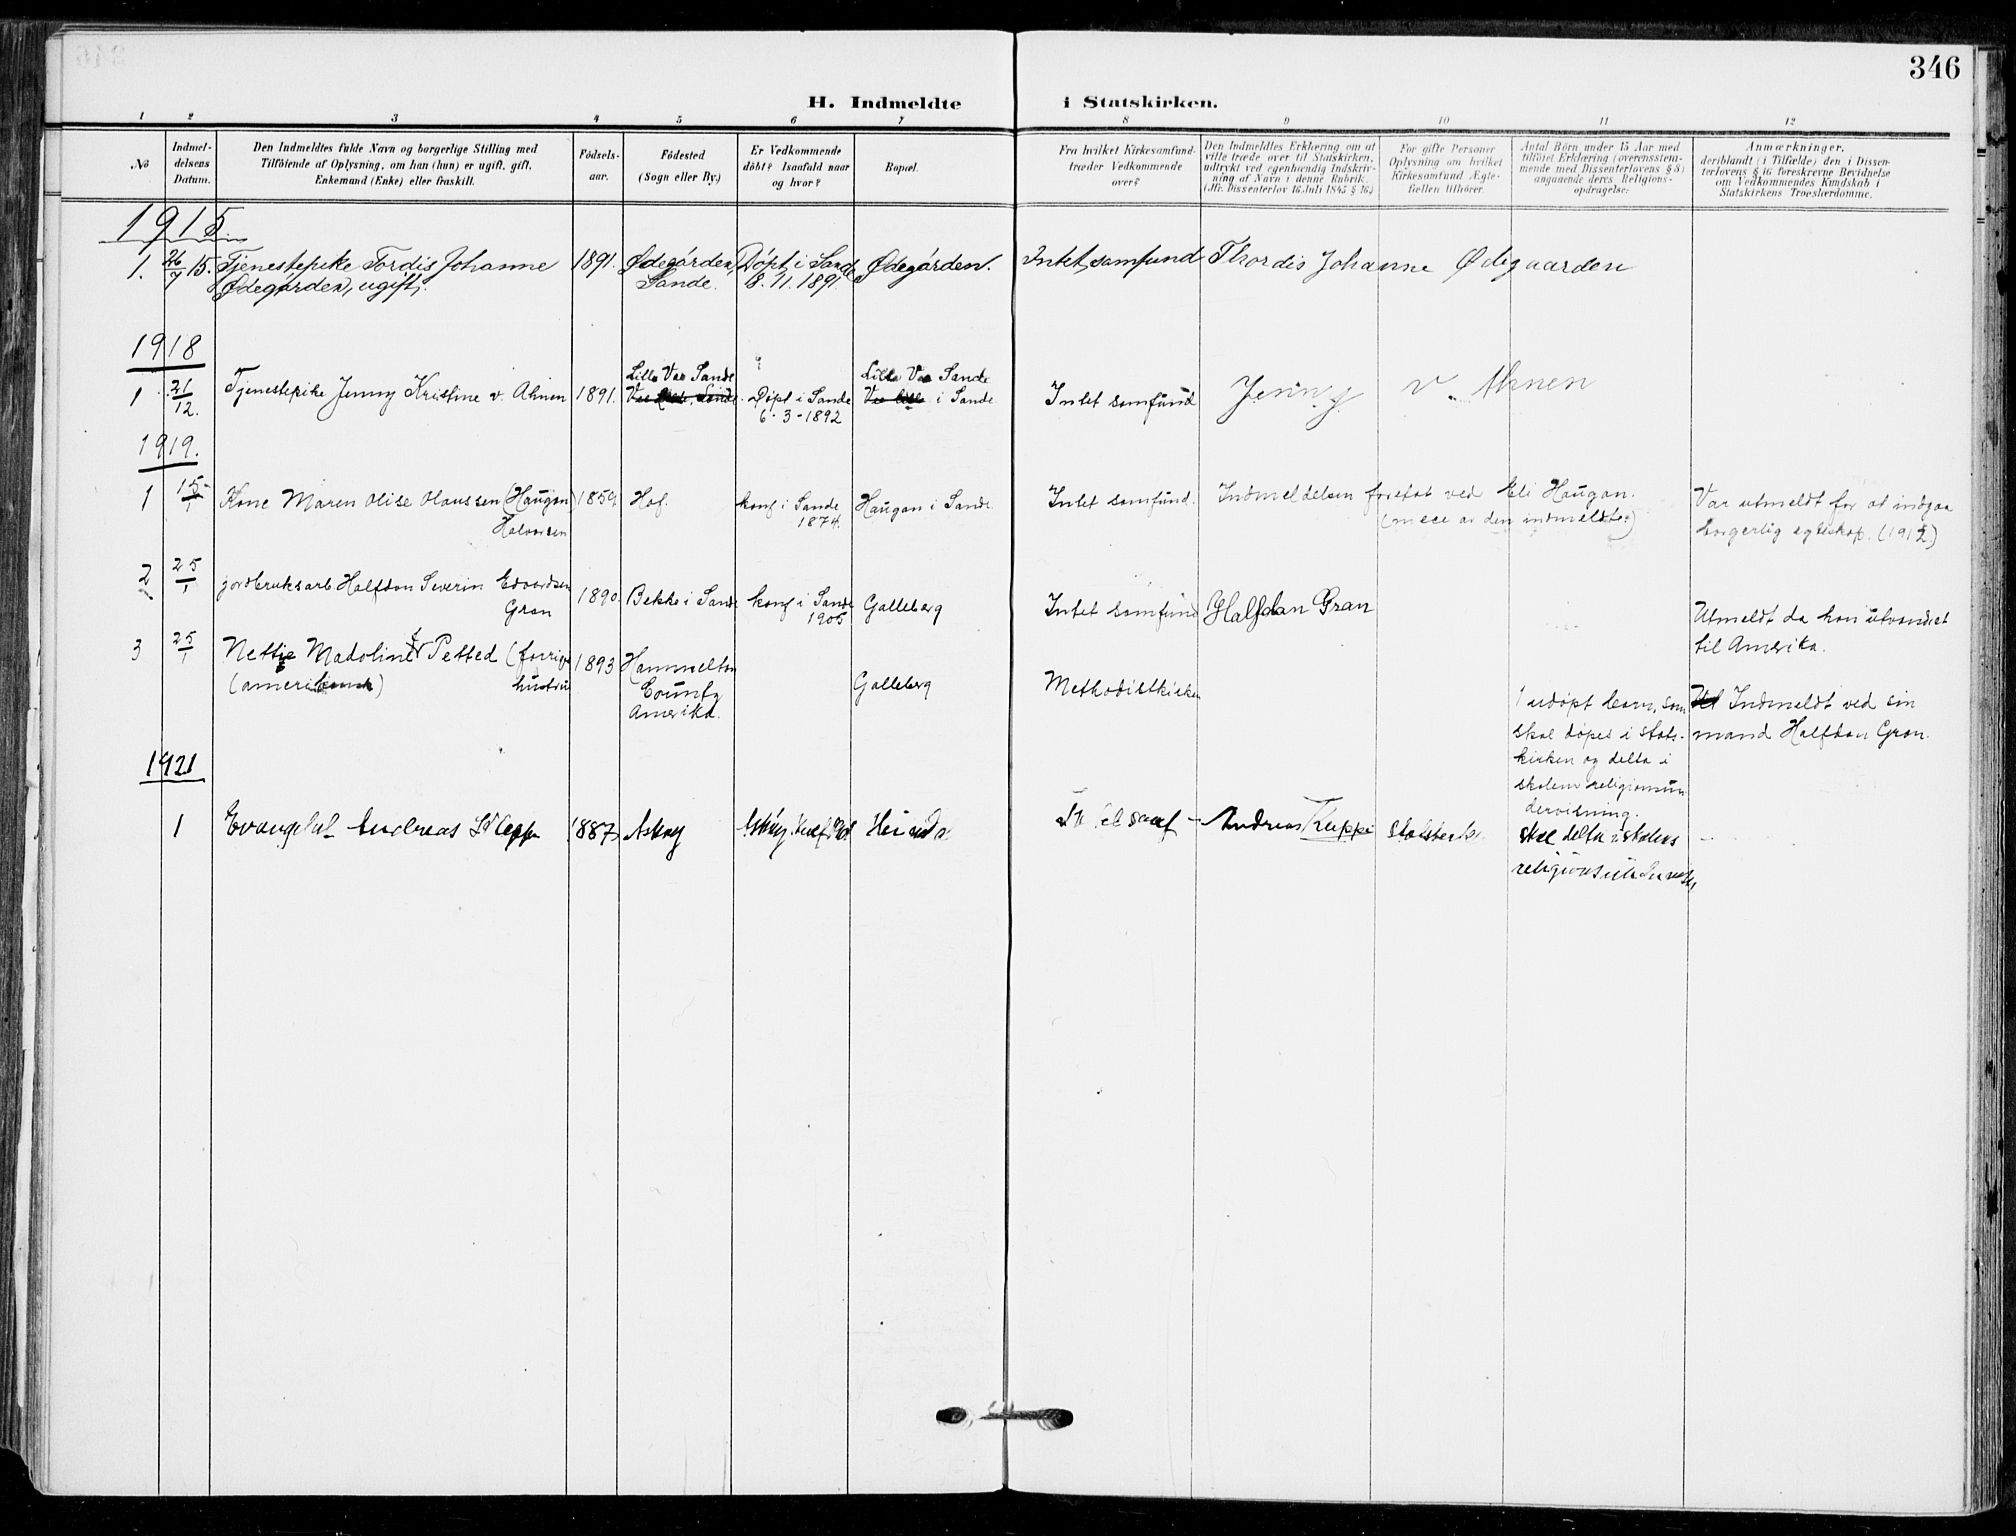 346
H. Indmeldte i Statskirken.
1 2 3 4 5 6 7 8 9 10 11 12
No
Indmel-
delsens
Datum.
Den Indmeldtes fulde Navn og borgerlige Stilling med
Tilföiende af Oplysning, om han (hun) er ugift, gift,
Enkemand (Enke) eller fraskilt.
Födsels-
aar.
Födested
(Sogn eller By.)
Er Vedkommende
döbt? Isaafald naar
og hvor?
Bopæl.
Fra hvilket Kirkesamfund
træder Vedkommende
over?
Den Indmeldtes Erklæring om at
ville træde over til Statskirken,
udtrykt ved egenhændig Indskriv-
ning af Navn i denne Rubrik.
(Jfr. Dissenterlov 16 Juli 1845 § 16.)
For gifte Personer
Oplysning om hvilket
Kirkesamfund Ægte-
fællen tilhörer.
Antal Börn under 15 Aar med
tilföiet Erklæring (overensstem-
mende med Dissenterlovens § 8)
angaaende deres Religions-
opdragelse:
Anmærkninger,
deriblandt (i Tilfælde) den i Dissen-
terlovens § 16 foreskrevne Bevidnelse
om Vedkommendes Kundskab i
Statskirkens Troeslærdomme.
1915.
1. 26/7 15. Tjenestepike Tordis Johanne 1891. Ødegården, Døpt i Sande Ødegården. Intet samfund Thordis Johanne Ødegaarden
Ødegården, ugift. Sande. 8.11.1891.
1918
Lille Vas Sande Lille Vas Sande
1 21/12. Tjenestepike Jenny Kristine v. Ahnen 1891. Døpt i Sande i Sande Intet samfund Jenny v. Ahnen
6-3-1892
1919.
1 15/1 Kone Maren Olise Olaussen (Haugan) 1859. Hof. konf i Sande Haugan i Sande. Intet samfund. Indmeldelsen foretat ved Eli Haugan. Var utmeldt for at indgaa
Halvorsen 1874. (mece av den indmeldte) borgerlig egteskap. (1912)
2 25/1 jordbruksarb Halfdan Severin Edvardsen 1890. Bekke i Sande konf i Sande Galleberg Intet samfund Halfdan Gran Utmeldt da han utvandret
Gran 1905 til Amerika.
3 25/1 Nettie Madoline f Petted (forrige 1893 Hammelton Galleberg Methodistkirken
(amerikansk) hustru County
Amerika.
1 udøpt barn, som Indmeldt ved sin
skal døpes i stats- mand Halfdan Gran.
kirken og delta i
skolens religionsun
dervisning.
1921
1 Evangelist Andreas Kleppe 1887 Askøy Askøy. Andreas Kleppe skal delta i skolens